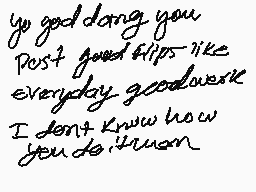 yo god dang you
post good flips like
everyday good work
I dont know how
you do it man